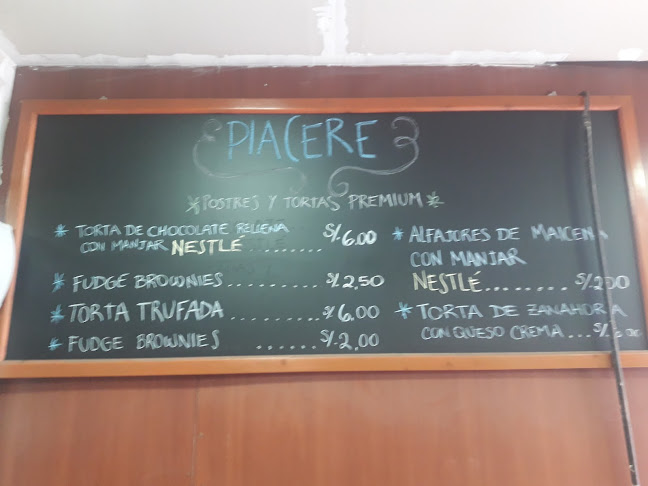 PIACERE
POSTRES Y TORTAS PREMIUM
* TORTA DE CHOCOLATE RELLENA
CON MANJAR NESTLÉ ........ S/. 6.00
* FUDGE BROWNIES .......... S/. 2,50
* TORTA TRUFADA ........... S/ 6,00
* FUDGE BROWNIES ....... S/. 2,00
* ALFAJORES DE MAICENA
CON MANJAR
NESTLÉ ........ S/.
* TORTA DE ZANAHORIA
CON QUESO CREMA ... S/.